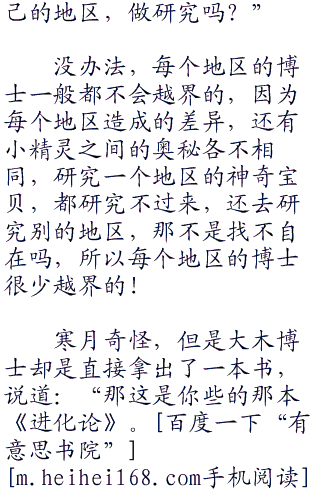 己的地区，做研究吗？”
没办法，每个地区的博
士一般都不会越界的，因为
每个地区造成的差异，还有
小精灵之间的奥秘各不相
同，研究一个地区的神奇宝
贝，都研究不过来，还去研
究别的地区，那不是找不自
在吗，所以每个地区的博士
很少越界的！
寒月奇怪，但是大木博
士却是直接拿出了一本书，
说道：“那这是你些的那本
《进化论》。[百度一下“有
意思书院”]
[m.heihei168.com手机阅读]